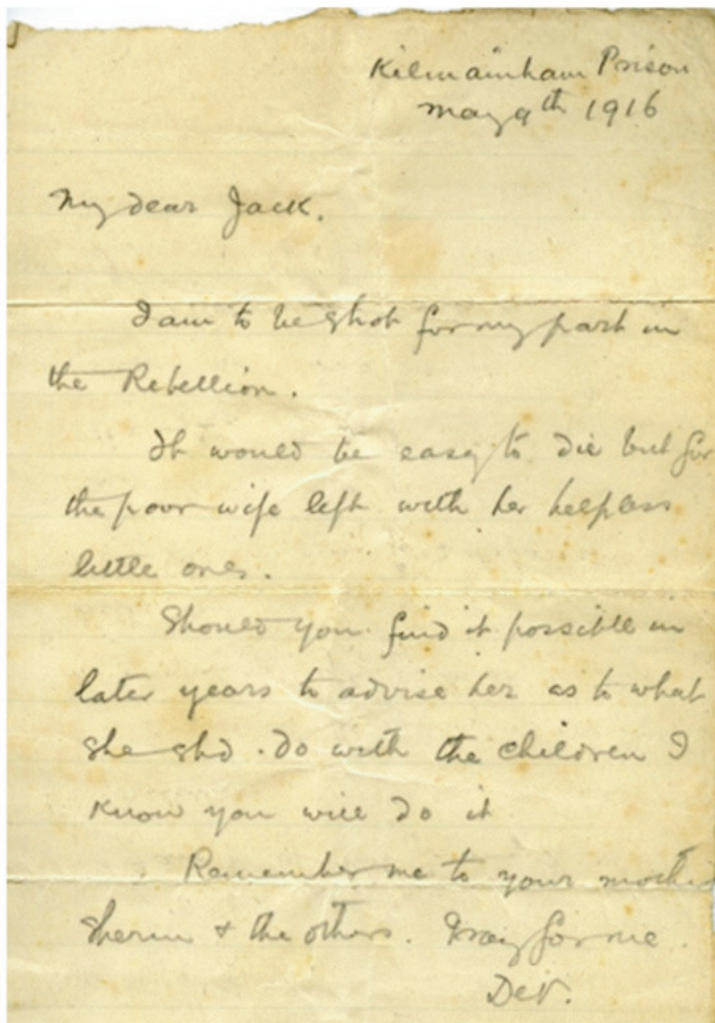 Kilmainham Prison
May 9th 1916
My dear Jack.
I am to be shot for my part in
the Rebellion.
It would be easy to die but for
the poor wife left with her helpless
little ones.
Should you find it possible in
later years to advise her as to what
she shd. do with the children I
know you will do it
Remember me to your mother
& the others. Pray for me.
Dev.